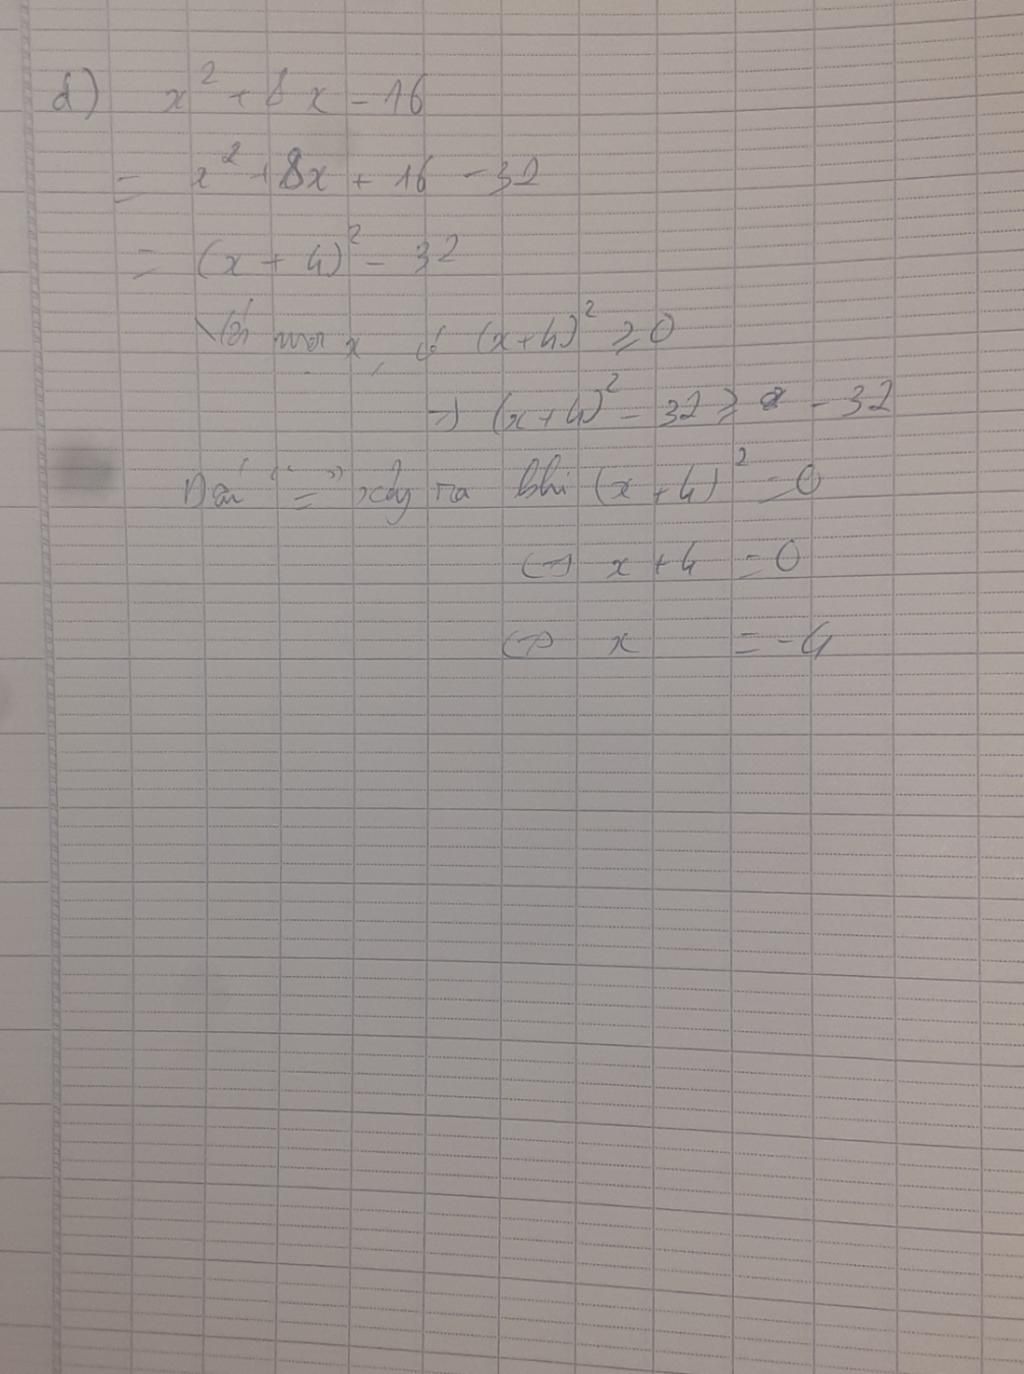 d) x² + 8x - 16
= x² + 8x + 16 - 32
= (x + 4)² - 32
Với mọi x, có (x+4)² ≥ 0
→ (x+4)² - 32 ≥ - 32
Dấu "=" xảy ra khi (x + 4)² = 0
<=> x + 4 = 0
<=> x = -4